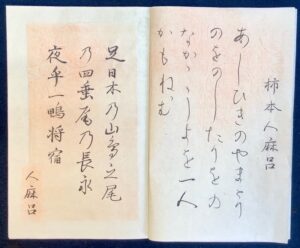 柿本人麻呂
あしひきのやまとり
のをのしたりをの
なか〱しよを一人
かもねむ
足日木乃山鳥之尾
乃四垂尾乃長永
夜乎一鴨将宿
人麻呂